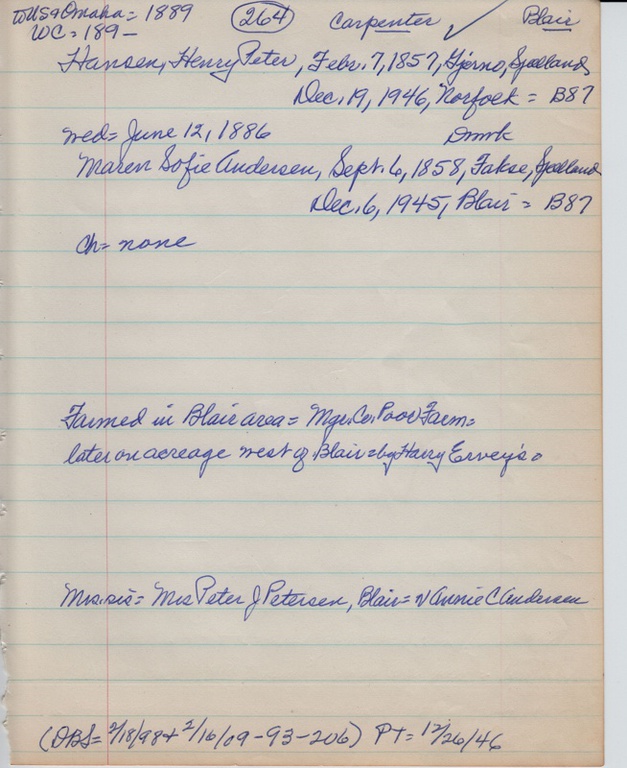 to US & Omaha = 1889 264 Carpenter ✓ Blair
WC = 189-
Hansen, Henry Peter, Febr. 7, 1857, Gjerno, Sjaelland,
Dec. 19, 1946, Norfolk = B87
wed = June 12, 1886 Dnmk
Maren Sofie Andersen, Sept. 6, 1858, Fakse, Sjaelland
Dec. 6, 1945, Blair = B87
Ch = none
Farmed in Blair area = Mgr. Co. Poor Farm =
later on acreage west of Blair = by Harry Ervey's.
Mrs. sis = Mrs Peter J Petersen, Blair = Annie C Andersen
(DBS = 2/18/98 + 2/16/09-93-206) PT = 12/26/46